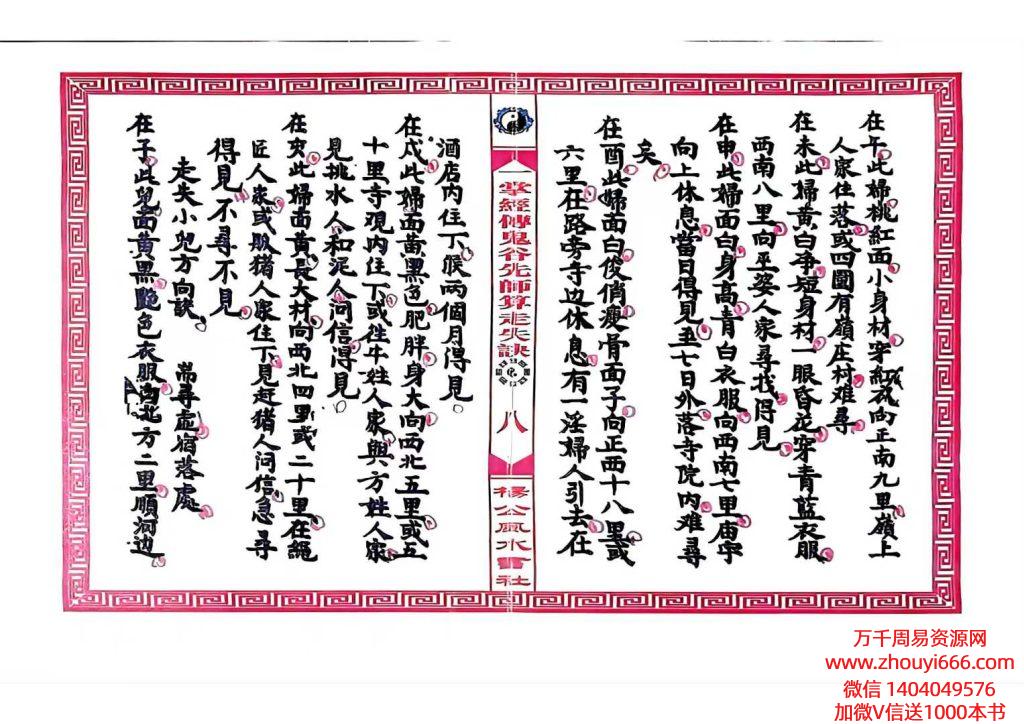 在午此婦桃紅面小身材穿紅衣向正南九里嶺上
人家住落或四圍有嶺庄村难尋
在未此婦黄白净短身材一眼昏花穿青藍衣服
西南八里向巫婆人家尋找得見
在申此婦面白身高青白衣服向西南七里庙宇
向上休息當日得見至七日外落寺院内难尋
矣
在酉此婦面白俊俏瘦骨面子向正西十八里或
六里在路旁寺边休息有一淫婦人引去在
一掌經傳鬼谷先師算走失訣
八
楊公風水書社
酒店内住下候两個月得見
在戌此婦面黄黑色肥胖身大向西北五里或五
十里寺观内住下或往牛姓人家與方姓人家
見挑水人和泥人问信得見
在亥此婦面黄長大材向西北四里或二十里在繩
匠人家或賬猪人家住下見赶猪人问信急尋
得見不尋不見
走失小兒方向訣 耑尋虚宿落處
在子此兒面黄黑艷色衣服西北方二里順河边
万千周易资源网
www.zhouyi666.com
微信 1404049576
加微V信送1000本书